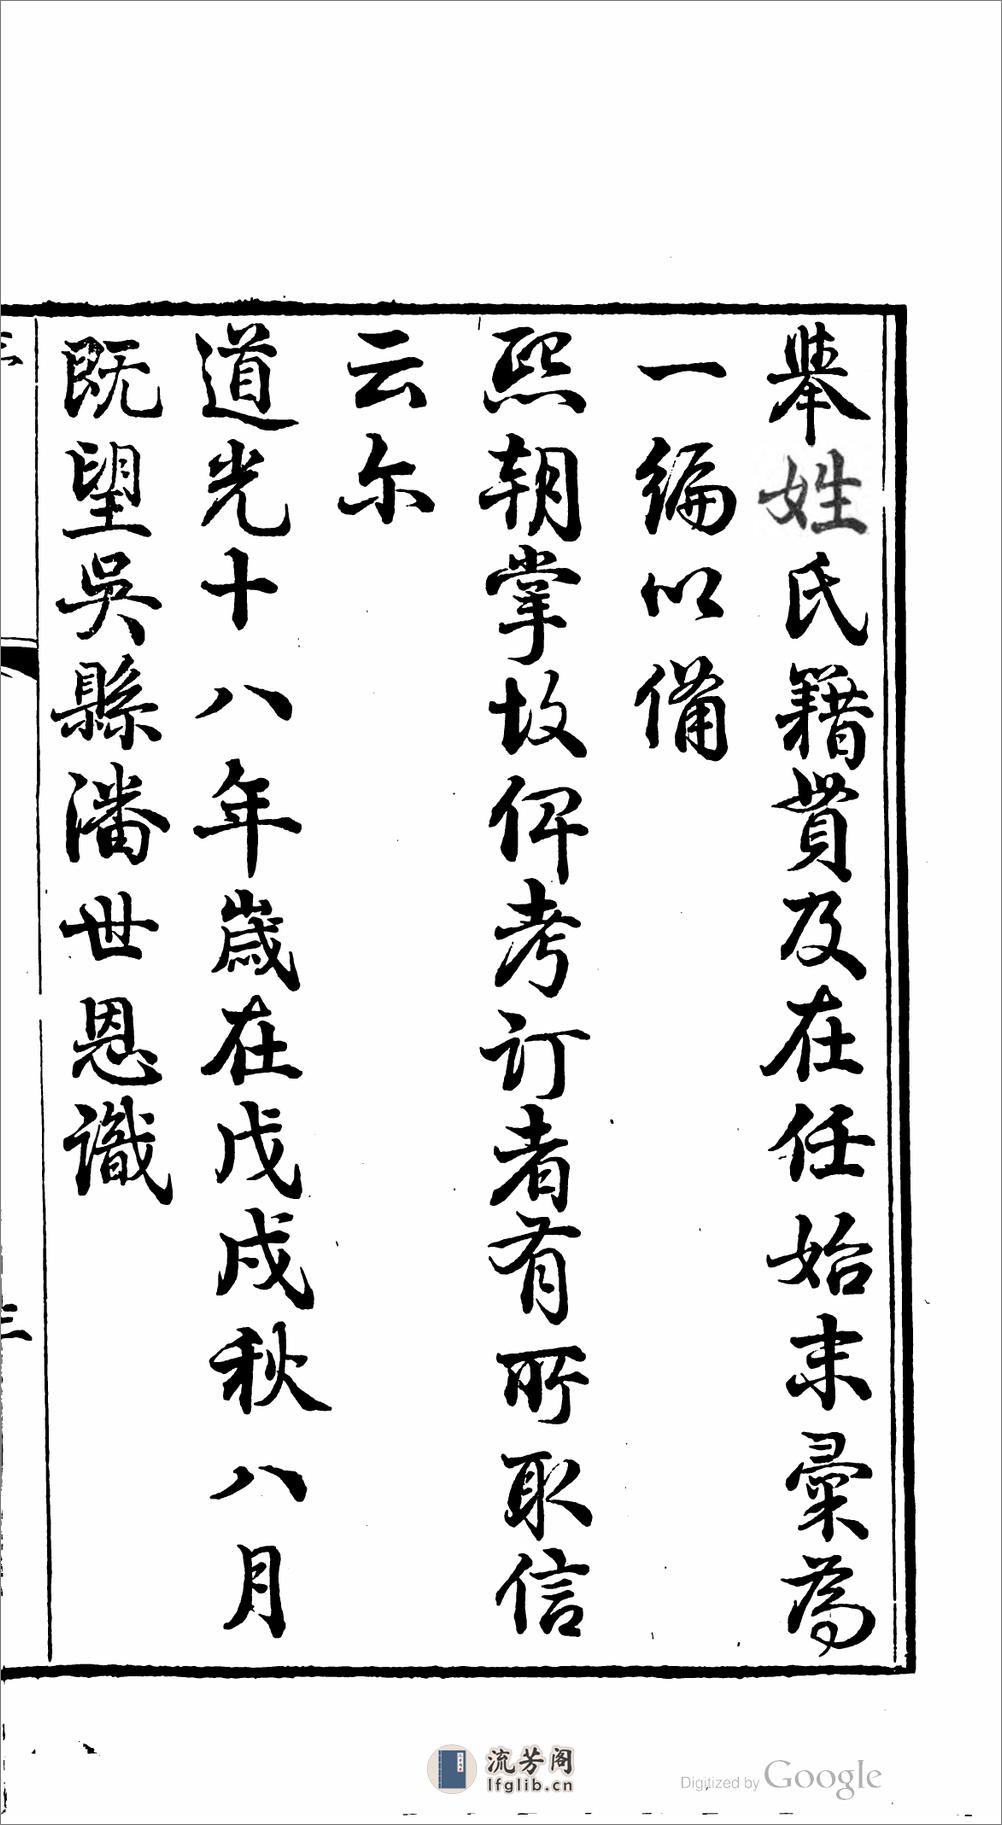 舉姓氏籍貫及在任始末彚爲
一編以備
熙朝掌故俾考訂者有所取信
云尒
道光十八年歲在戊戌秋八月
既望吳縣潘世恩識
三
流芳阁
lfglib.cn
Digitized by Google